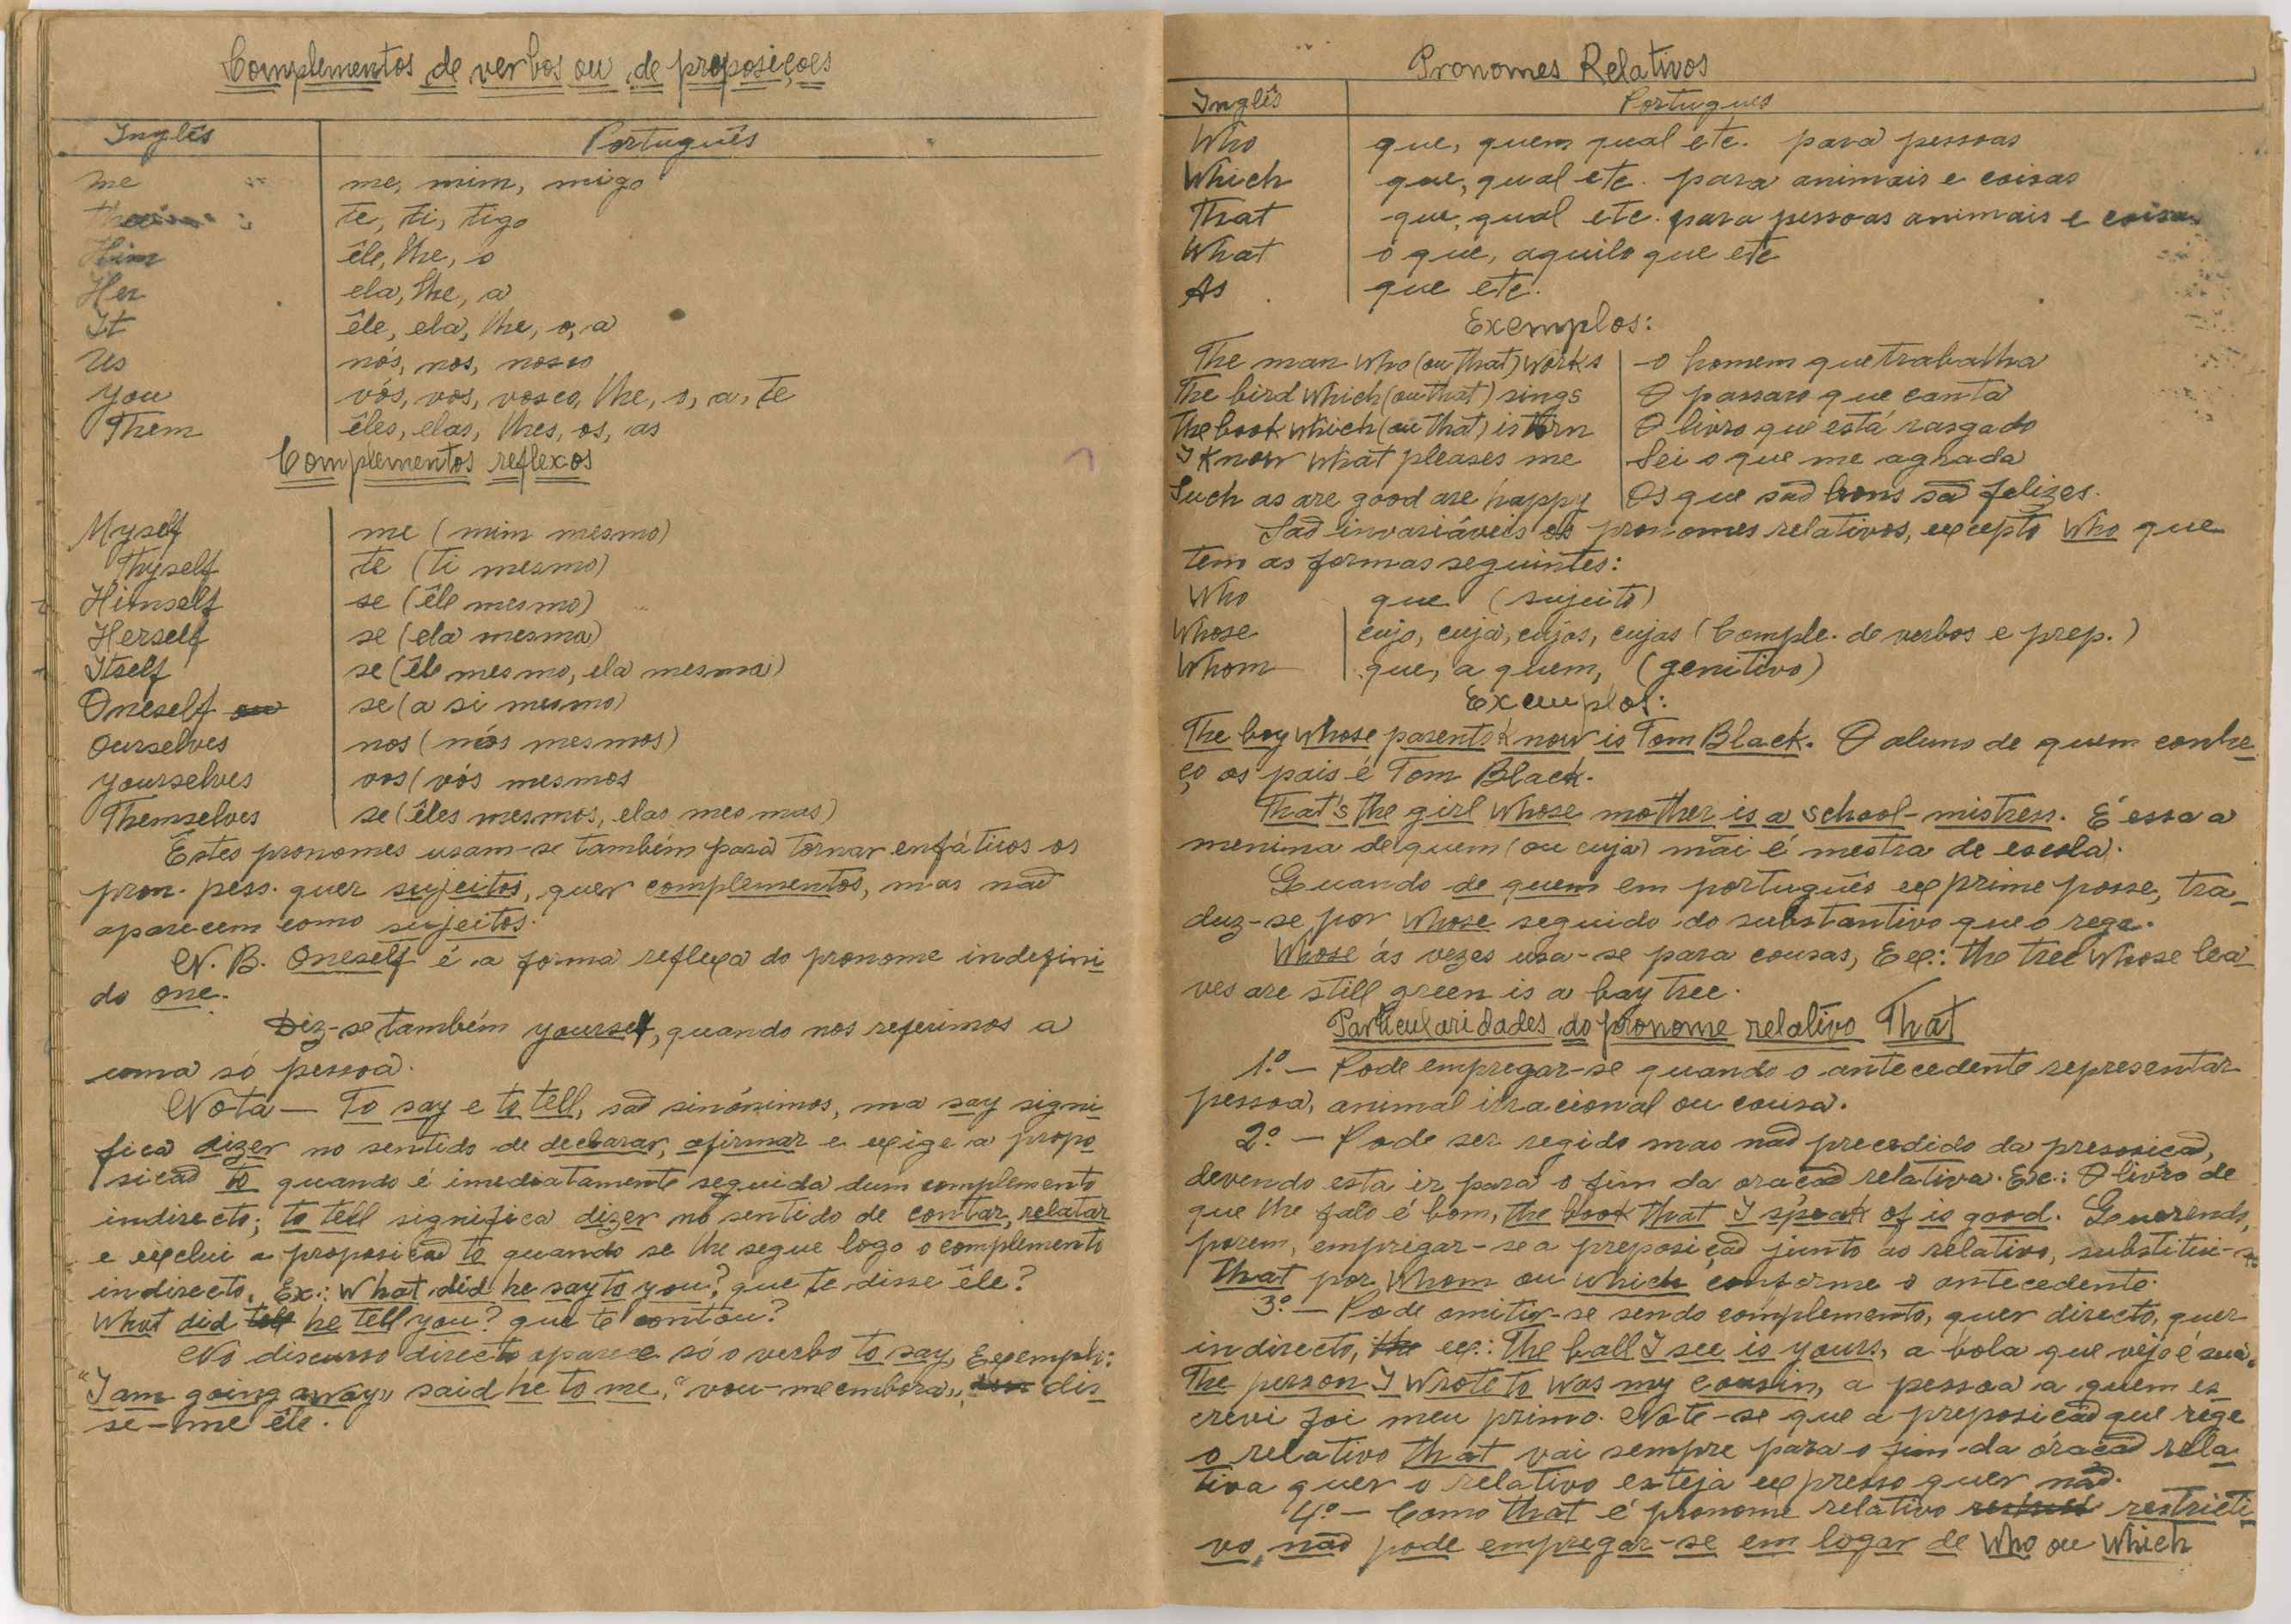 Complementos de verbos ou de proposiçoes
Inglês Português
me me, mim, migo
te, ti, tigo
Him êle, lhe, o
Her ela, lhe, a
It êle, ela, lhe, o, a
Us nós, nos, nosco
you vós, vos, vosco, lhe, o, a, te
Them êles, elas, lhes, os, as
Complementos reflexos
Myself me (mim mesmo)
Thyself te (ti mesmo)
Himself se (êle mesmo)
Herself se (ela mesma)
Itself se (êle mesmo, ela mesma)
Oneself ou se (a si mesmo)
Ourselves nos (nós mesmos)
yourselves vos (vós mesmos
Themselves se (êles mesmos, elas mesmas)
Estes pronomes usam-se também para tornar enfáticos os
pron. pess. quer sujeitos, quer complementos, mas nao
aparecem como sujeitos.
N. B. Oneself é a forma reflexa do pronome indefini
do one.
Diz-se também yourself, quando nos referimos a
uma só pessoa.
Nota — To say e to tell, sao sinónimos, ma say signi
fica dizer no sentido de declarar, afirmar e exige a propo
siçao to quando é imediatamente seguida dum complemento
indirecto; to tell significa dizer no sentido de contar, relatar
e exclui a proposiçao to quando se lhe segue logo o complemento
indirecto. Ex.: What did he say to you? que te disse êle?
What did tell he tell you? que te contou?
No discurso directo aparece só o verbo to say, Exemplo:
"I am going away" said he to me, "vou-me embora", dis
se-me êle.
Pronomes Relativos
Inglês Portugues
Who que, quem qual etc. para pessoas
Which que, qual etc. para animais e coisas
That que, qual etc. para pessoas animais e coisas
What o que, aquilo que etc
As que etc.
Exemplos:
The man who (ou that) works o homem que trabalha
The bird which (ou that) sings O passaro que canta
The book which (ou that) is torn O livro que está rasgado
I know what pleases me Sei o que me agrada
Such as are good are happy Os que sao bons sao felizes.
Sao invariáveis os pronomes relativos, excepto Who que
tem as formas seguintes:
Who que (sujeito)
Whose cujo, cuja, cujos, cujas (Comple. de verbos e prep.)
Whom que, a quem, (genitivo)
Exemplos:
The boy whose parents I know is Tom Black. O aluno de quem conhe
ço os pais é Tom Black.
That's the girl whose mother is a school-mistress. É essa a
menina de quem (ou cuja) mãi é mestra de escola.
Quando de quem em português exprime posse, tra-
duz-se por whose seguido do substantivo que o rege.
Whose ás vezes usa-se para cousas, Ex.: the tree whose lea
ves are still green is a bay tree.
Particularidades do pronome relativo That
1.º — Pode empregar-se quando o antecedente representar
pessoa, animal irracional ou cousa.
2.º — Pode ser regido mas nao precedido da preposiçao,
devendo esta ir para o fim da oraçao relativa. Ex.: O livro de
que lhe falo é bom, the book that I speak of is good. Querendo,
porem, empregar-se a preposiçao junto ao relativo, substitui-se
that por whom ou which conforme o antecedente.
3.º — Pode omitir-se sendo complemento, quer directo, quer
indirecto, the ex.: The ball I see is yours, a bola que vejo é sua.
The person I wrote to was my cousin, a pessoa a quem es
crevi foi meu primo. Note-se que a preposiçao que rege
o relativo that vai sempre para o fim da oraçao rela
tiva quer o relativo esteja expresso quer nao.
4.º — Como that é pronome relativo restricti
vo, nao pode empregar-se em logar de who ou which